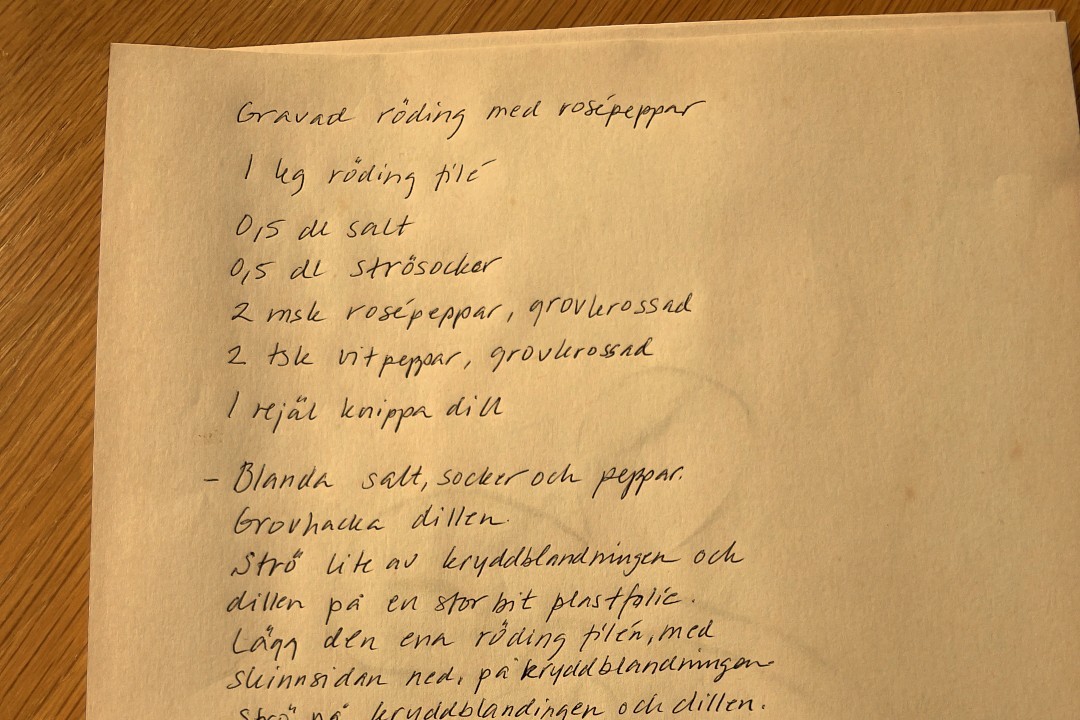 Gravad röding med rosépeppar
1 kg röding filé
0,5 dl salt
0,5 dl strösocker
2 msk rosépeppar, grovkrossad
2 tsk vitpeppar, grovkrossad
1 rejäl knippa dill
- Blanda salt, socker och peppar.
Grovhacka dillen.
Strö lite av kryddblandningen och
dillen på en stor bit plastfolie.
Lägg den ena röding filén, med
skinnsidan ned, på kryddblandningen
Strö på kryddblandingen och dillen.